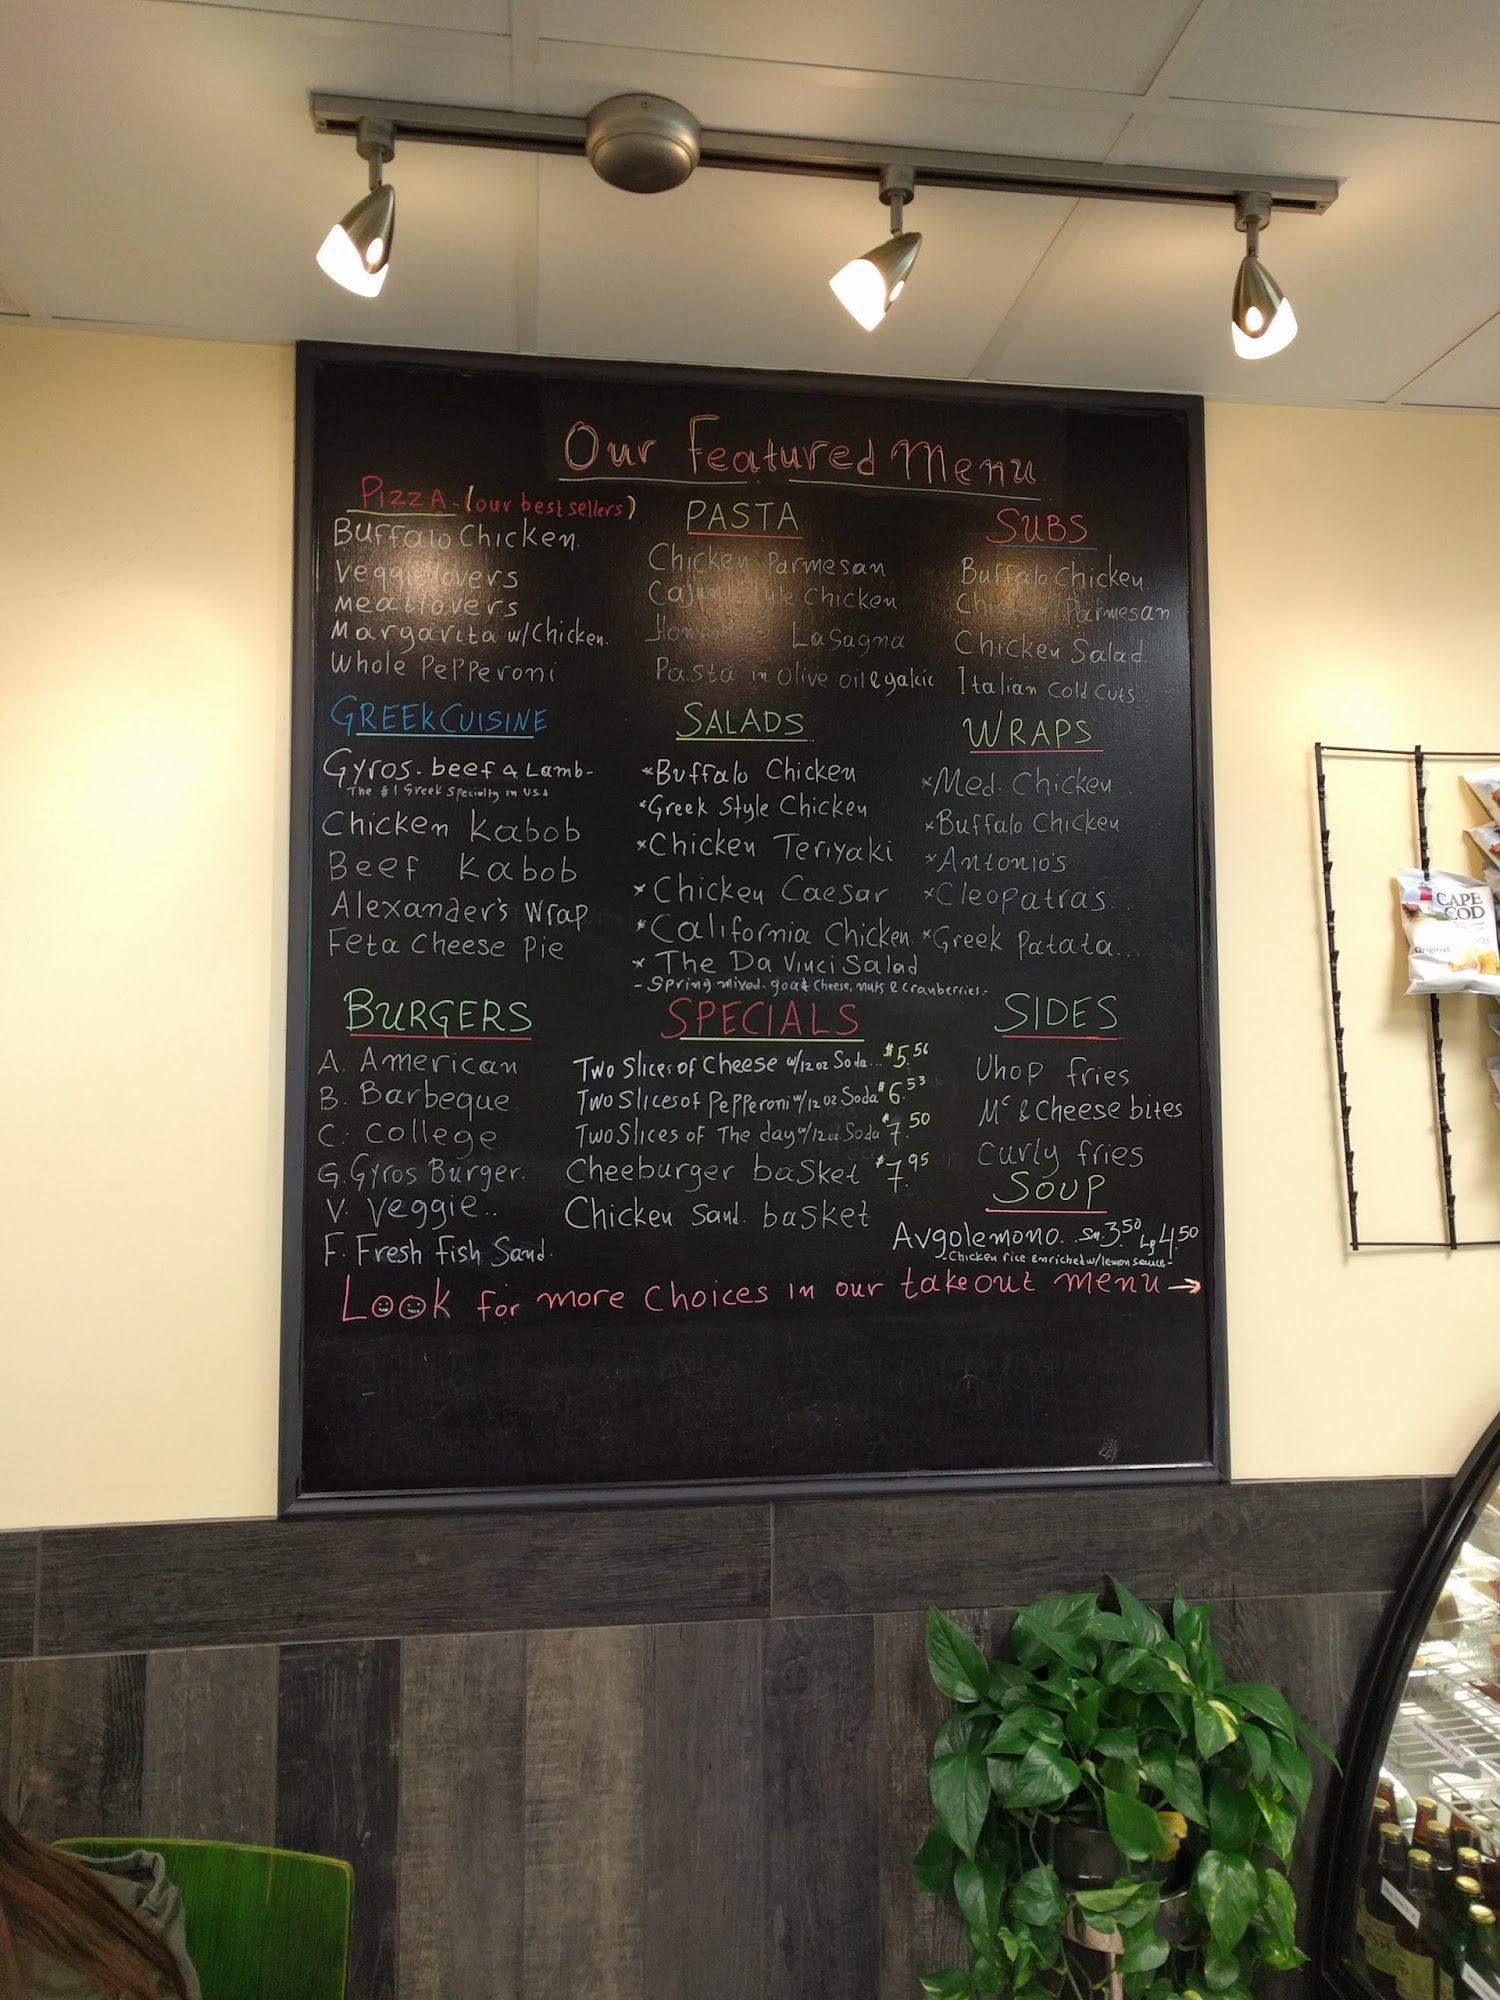 Our Featured Menu
PIZZA - (our best sellers)
Buffalo Chicken
Veggielovers
Meatlovers
Margarita w/Chicken.
Whole Pepperoni
PASTA
Chicken Parmesan
Cajun Style Chicken
Lasagna
Pasta in Olive oil & galic
SUBS
Buffalo Chicken
Chicken Parmesan
Chicken Salad
Italian Cold Cuts..
GREEK CUISINE
Gyros. beef & Lamb-
The #1 Greek Specialty in USA
Chicken Kabob
Beef Kabob
Alexander's Wrap
Feta Cheese Pie
SALADS
*Buffalo Chicken
*Greek Style Chicken
*Chicken Teriyaki
*Chicken Caesar
*California Chicken.
*The Da Vinci Salad
- Spring mixed. goat cheese, nuts & cranberries.-
WRAPS
*Med. Chicken
*Buffalo Chicken
*Antonio's
*Cleopatra's..
*Greek Patata...
BURGERS
A. American
B. Barbeque
C. College
G. Gyros Burger.
V. Veggie..
F. Fresh fish Sand.
SPECIALS
Two Slices of Cheese w/12 oz Soda... $5.56
Two Slices of Pepperoni w/12 oz Soda $6.53
Two Slices of The day w/12 oz. Soda $7.50
Cheeburger basket $7.95
Chicken Sand. basket
SIDES
Uhop fries
Mc & Cheese bites
Curly fries
SOUP
Avgolemono.. Sm. 3.50 Lg 4.50
-Chicken rice enriched w/lemon sauce-
Look for more choices in our takeout menu →
CAPE
COD
Original